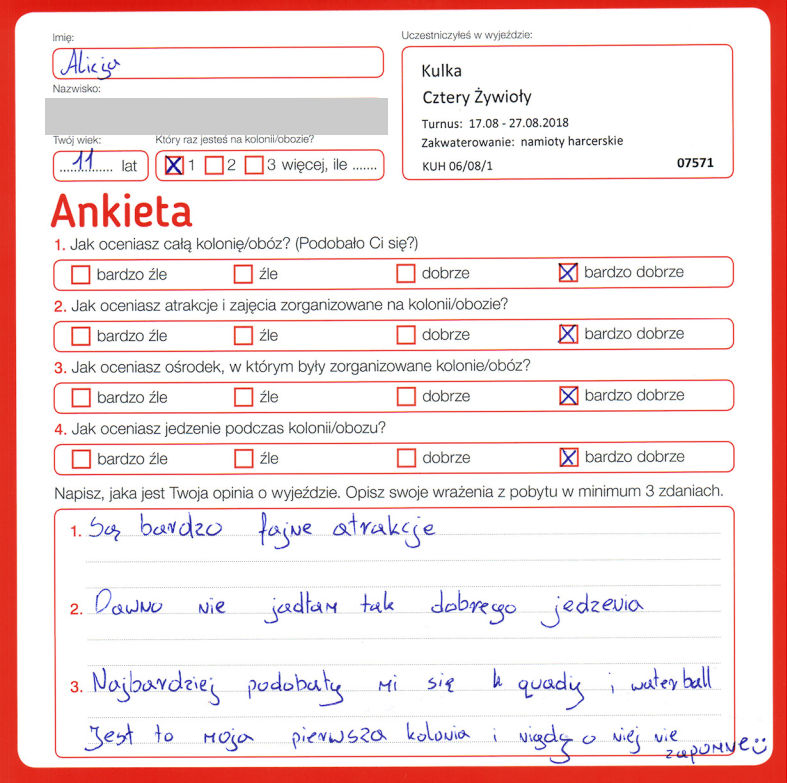 Imię:
Alicja
Nazwisko:
Twój wiek:
11 lat
Który raz jesteś na kolonii/obozie?
1 2 3 więcej, ile .......
Uczestniczyłeś w wyjeździe:
Kulka
Cztery Żywioły
Turnus: 17.08 - 27.08.2018
Zakwaterowanie: namioty harcerskie
KUH 06/08/1 07571
Ankieta
1. Jak oceniasz całą kolonię/obóz? (Podobało Ci się?)
bardzo źle źle dobrze bardzo dobrze
2. Jak oceniasz atrakcje i zajęcia zorganizowane na kolonii/obozie?
bardzo źle źle dobrze bardzo dobrze
3. Jak oceniasz ośrodek, w którym były zorganizowane kolonie/obóz?
bardzo źle źle dobrze bardzo dobrze
4. Jak oceniasz jedzenie podczas kolonii/obozu?
bardzo źle źle dobrze bardzo dobrze
Napisz, jaka jest Twoja opinia o wyjeździe. Opisz swoje wrażenia z pobytu w minimum 3 zdaniach.
1. Są bardzo fajne atrakcje
2. Dawno nie jadłam tak dobrego jedzenia
3. Najbardziej podobały mi się quady i waterball
Jest to moja pierwsza kolonia i nigdy o niej nie
zapomne